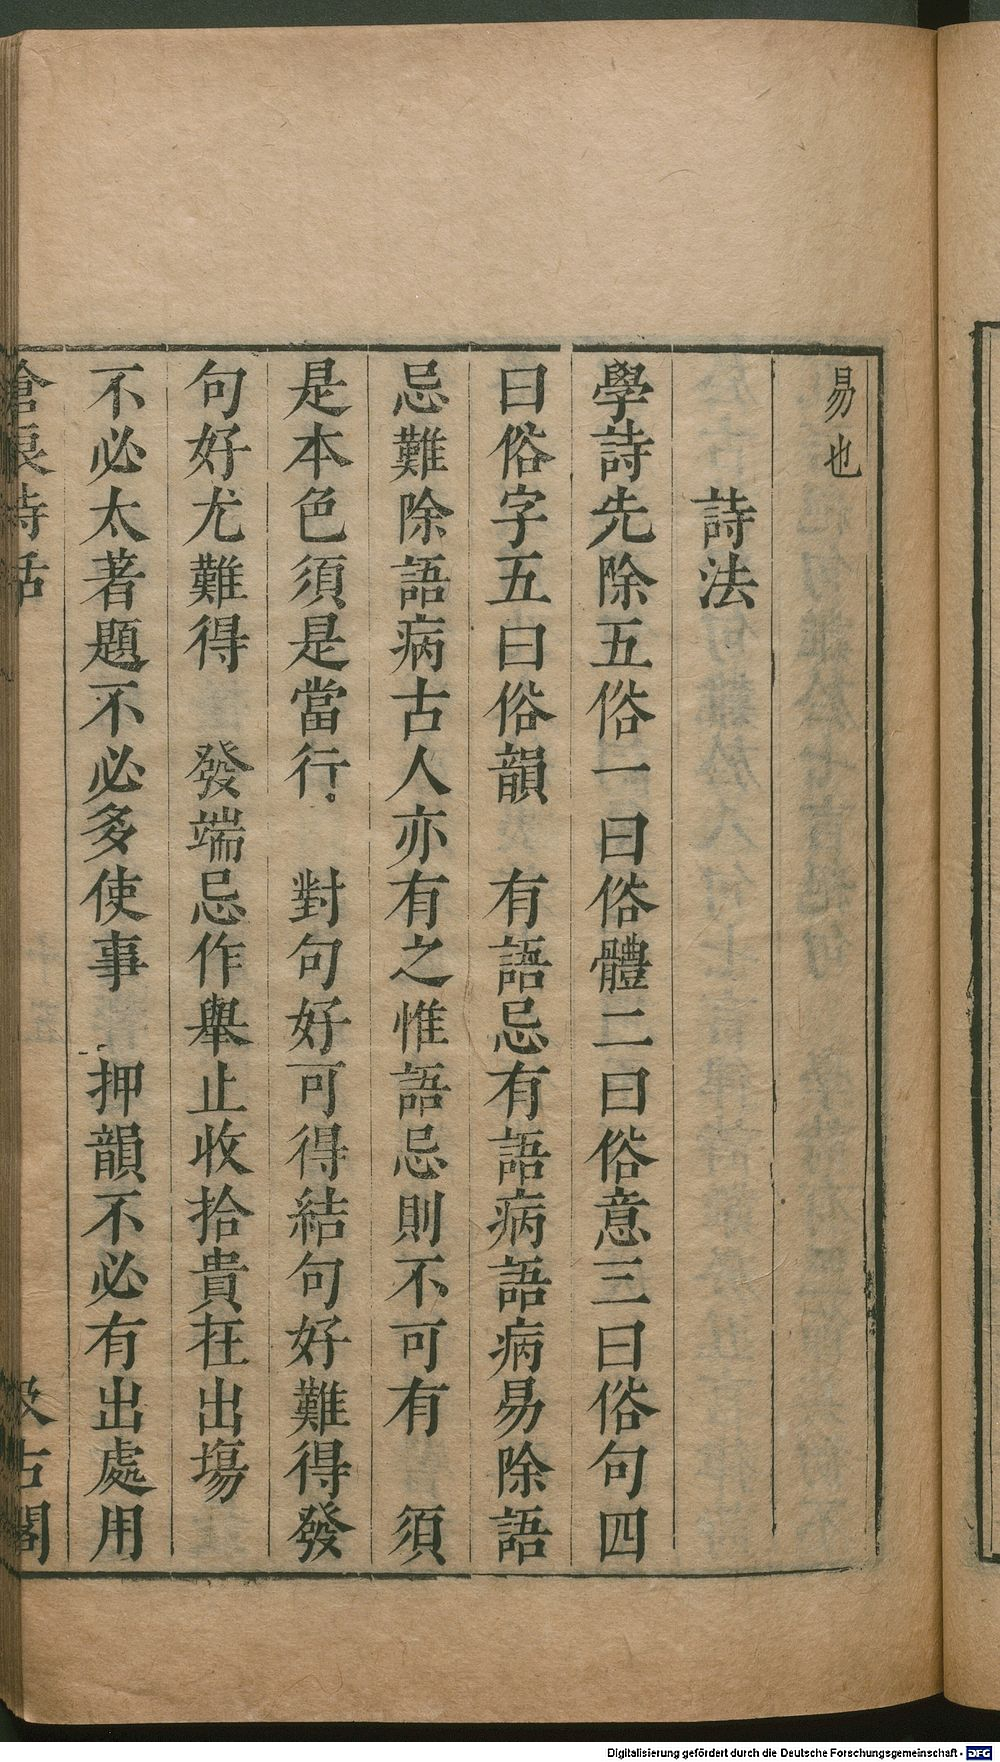 易也
詩法
學詩先除五俗一曰俗體二曰俗意三曰俗句四
曰俗字五曰俗韻　有語忌有語病語病易除語
忌難除語病古人亦有之惟語忌則不可有　須
是本色須是當行　對句好可得結句好難得發
句好尤難得　發端忌作舉止收拾貴在出塲
不必太著題不必多使事　押韻不必有出處用
滄浪詩話　汲古閣
Digitalisierung gefördert durch die Deutsche Forschungsgemeinschaft - DFG